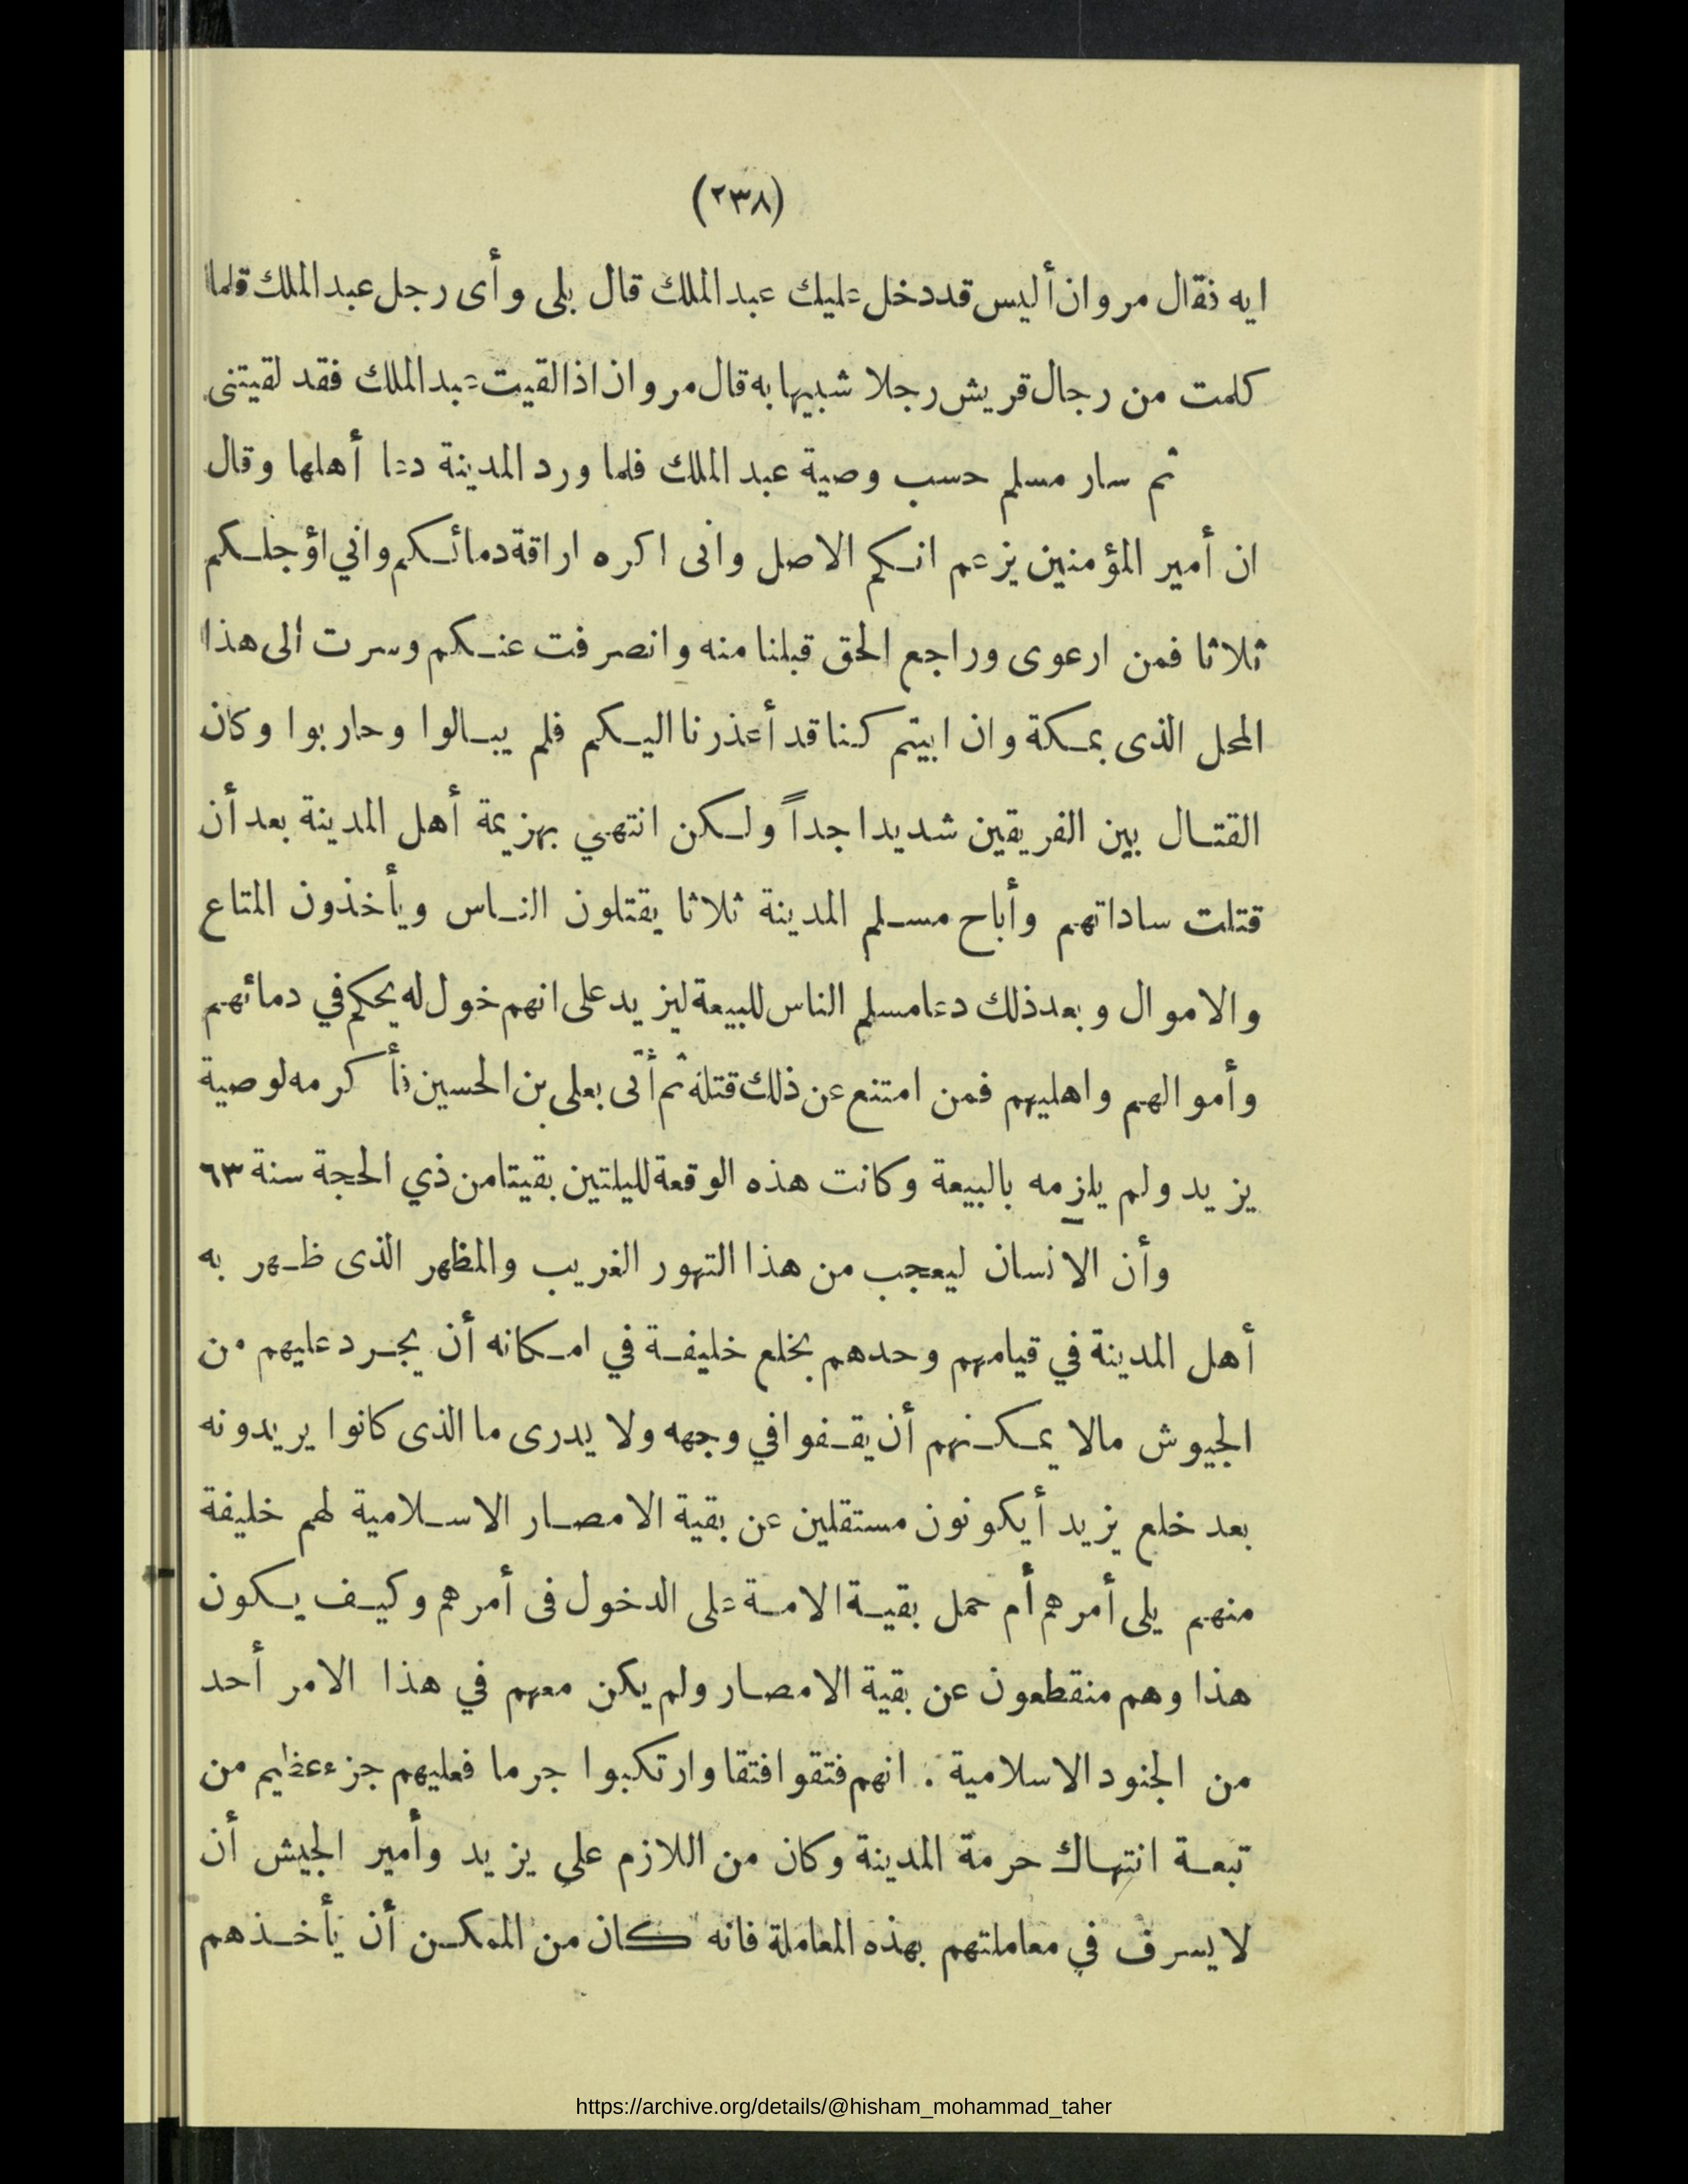 (٢٣٨)
ايه فقال مروان أليس قد دخل عليك عبد الملك قال بلى وأى رجل عبد الملك قلما
كلمت من رجال قريش رجلا شبيها به قال مروان اذا لقيت عبد الملك فقد لقيتنى
ثم سار مسلم حسب وصية عبد الملك فلما ورد المدينة دعا أهلها وقال
ان أمير المؤمنين يزعم انكم الاصل وانى اكره اراقة دمائكم واني اؤجلكم
ثلاثا فمن ارعوى وراجع الحق قبلنا منه وانصرفت عنكم وسرت الى هذا
المحل الذى بمكة وان ابيتم كنا قد أعذرنا اليكم فلم يبالوا وحاربوا وكان
القتال بين الفريقين شديدا جداً ولكن انتهي بهزيمة أهل المدينة بعد أن
قتلت ساداتهم وأباح مسلم المدينة ثلاثا يقتلون الناس ويأخذون المتاع
والاموال وبعد ذلك دعا مسلم الناس للبيعة ليزيد على انهم خول له يحكم في دمائهم
وأموالهم واهليهم فمن امتنع عن ذلك قتله ثم أتى بعلى بن الحسين فأكرمه لوصية
يزيد ولم يلزمه بالبيعة وكانت هذه الوقعة لليلتين بقيتا من ذي الحجة سنة ٦٣
وأن الانسان ليعجب من هذا التهور الغريب والمظهر الذى ظهر به
أهل المدينة في قيامهم وحدهم بخلع خليفة في امكانه أن يجرد عليهم من
الجيوش مالا يمكنهم أن يقفوا في وجهه ولا يدرى ما الذى كانوا يريدونه
بعد خلع يزيد أيكونون مستقلين عن بقية الامصار الاسلامية لهم خليفة
منهم يلى أمرهم أم حمل بقية الامة على الدخول فى أمرهم وكيف يكون
هذا وهم منقطعون عن بقية الامصار ولم يكن معهم في هذا الامر أحد
من الجنود الاسلامية . انهم فتقوا فتقا وارتكبوا جرما فعليهم جزء عظيم من
تبعة انتهاك حرمة المدينة وكان من اللازم على يزيد وأمير الجيش أن
لا يسرف في معاملتهم بهذه المعاملة فانه كان من الممكن أن يأخذهم
https://archive.org/details/@hisham_mohammad_taher